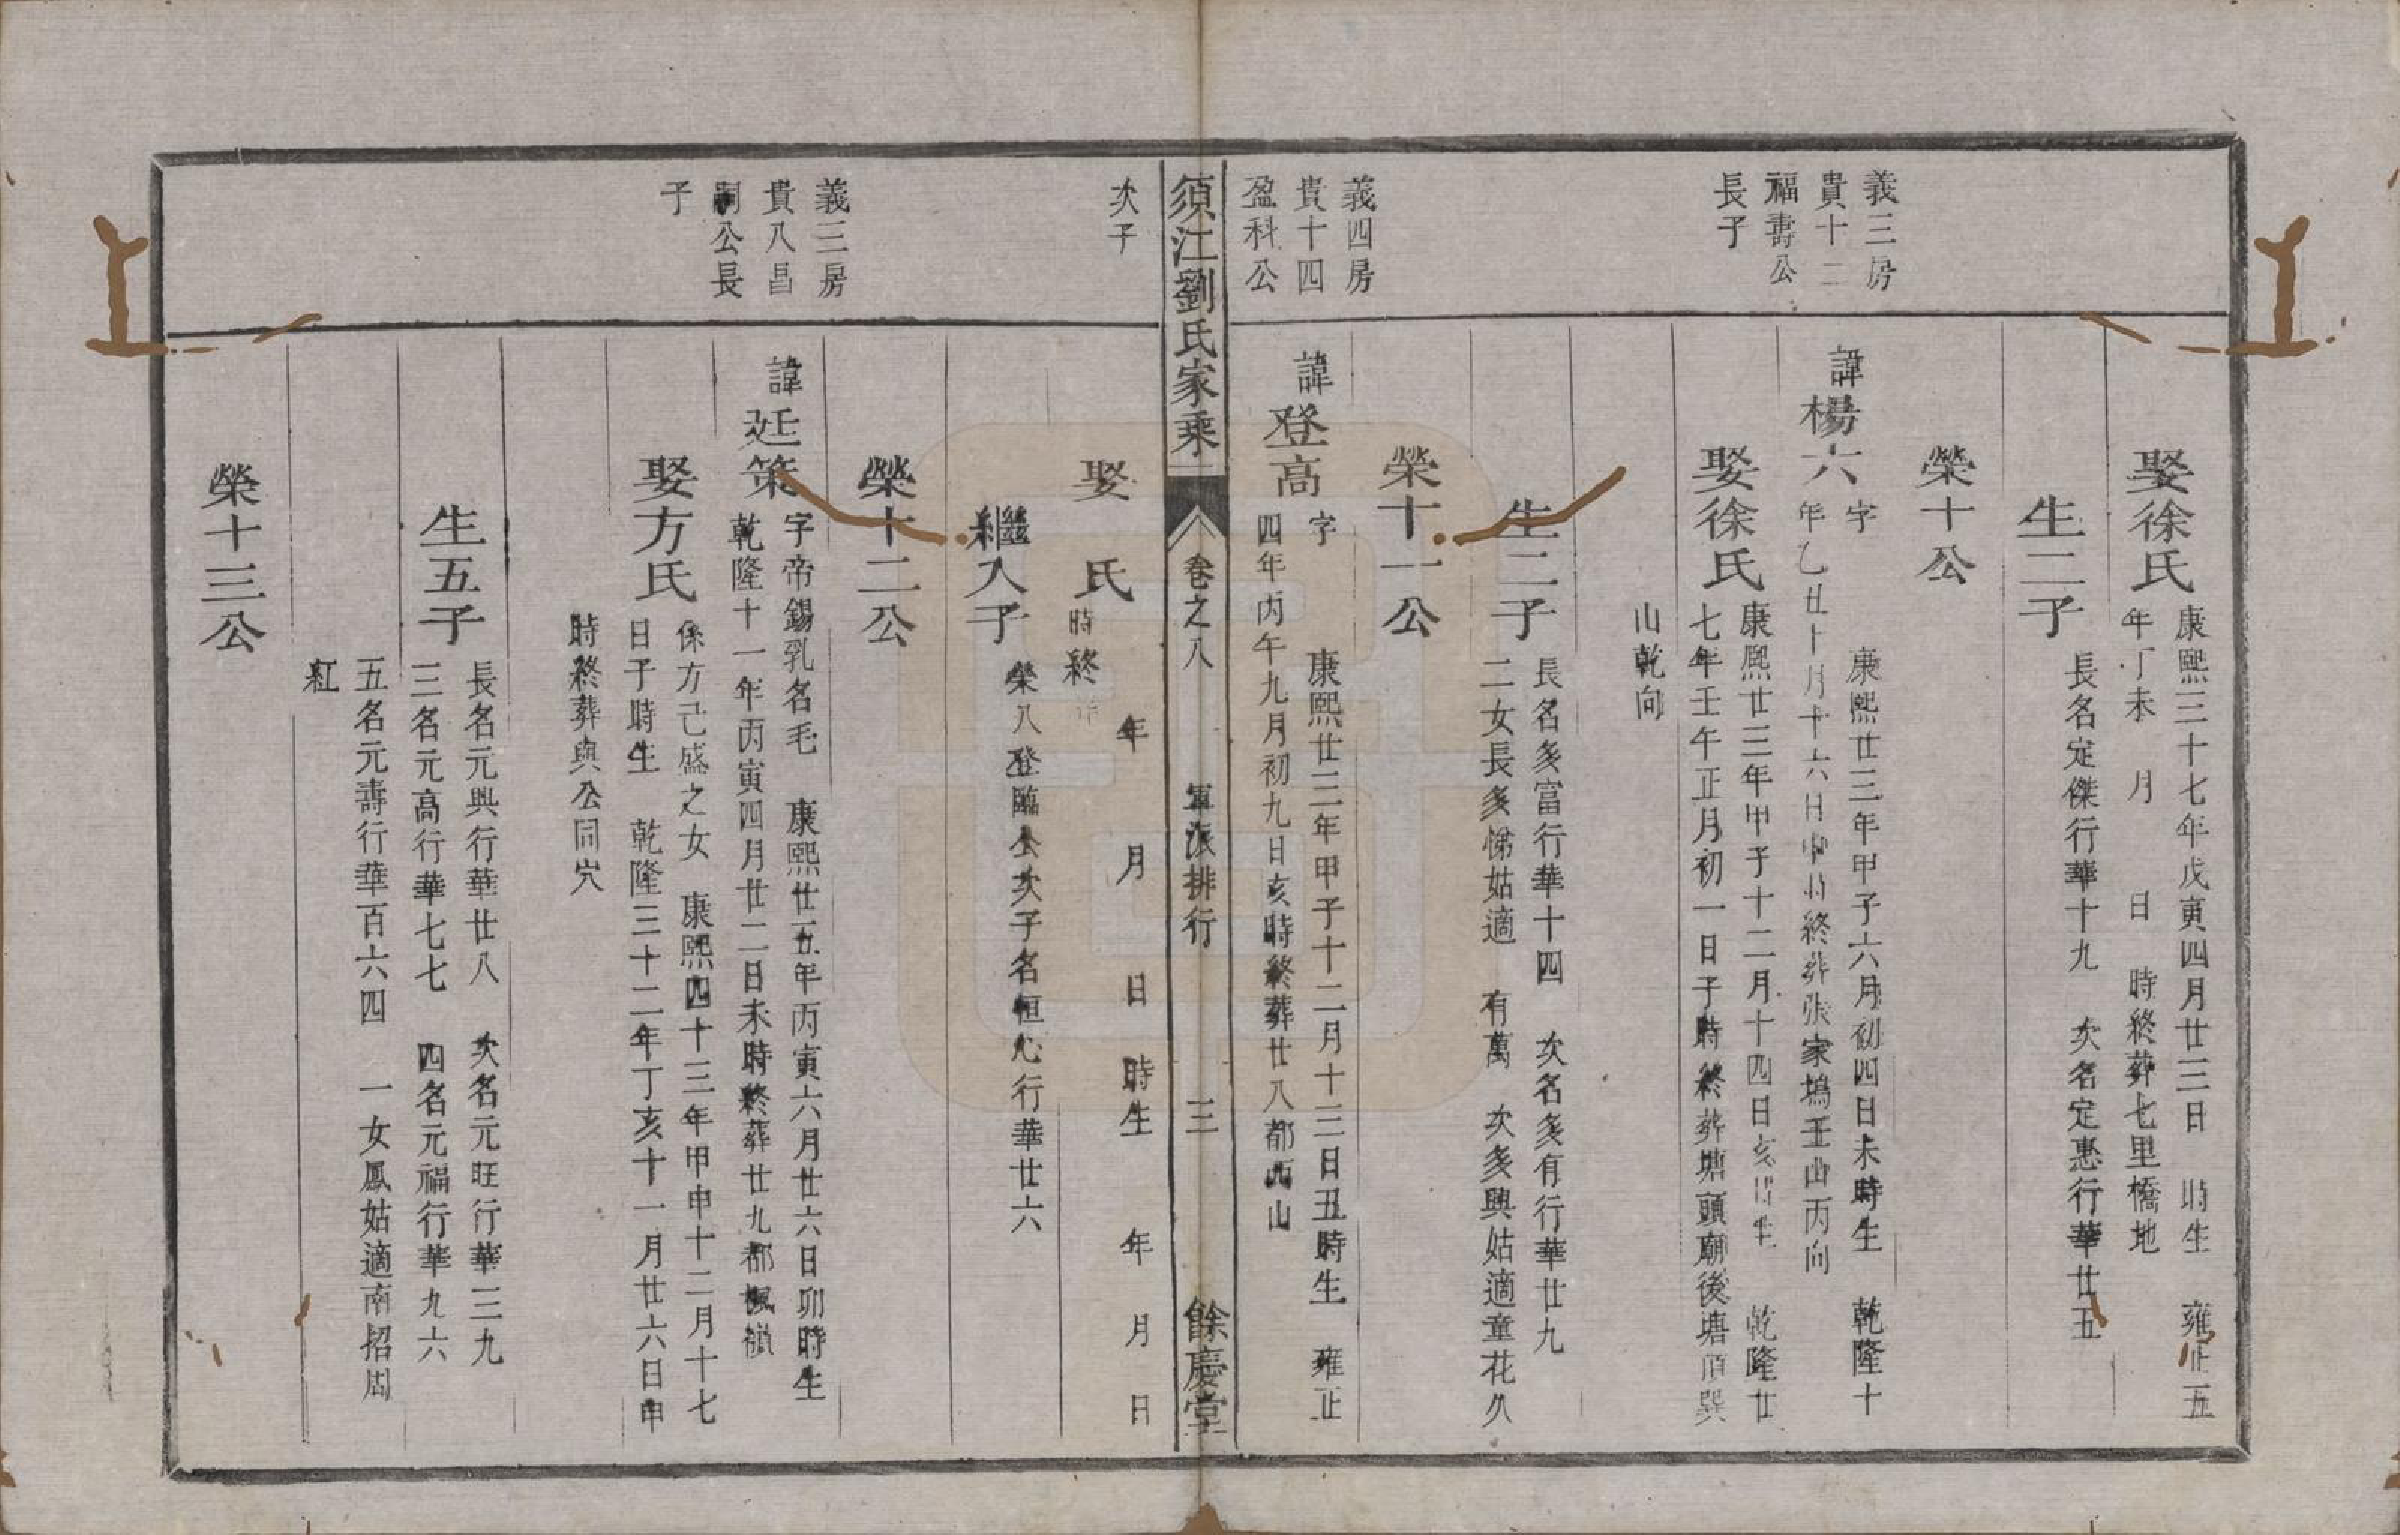 娶徐氏
康熙三十七年戊寅四月廿三日　時生　雍正五
年丁未　月　日　時終葬七里橋地
生二子
長名定傑行華十九　次名定惠行華廿五
榮十公
義三房
貴十二
福壽公
長子
諱楊六
字　康熙廿三年甲子六月初四日未時生　乾隆十
年乙丑十月十六日申時終葬張家塢壬山丙向
娶徐氏
康熙廿三年甲子十二月十四日亥時生　乾隆廿
七年壬午正月初一日子時終葬塘頭廟後塘 巽
山乾向
生二子
長名多富行華十四　次名多有行華廿九
二女長多悌姑適　有萬　次多興姑適童花久
榮十一公
義四房
貴十四
盈科公
次子
諱登高
字　康熙廿三年甲子十二月十三日丑時生　雍正
四年丙午九月初九日亥時終葬廿八都西山
須江劉氏家乘　卷之八　軍派排行　三　餘慶堂
娶　氏
年　月　日　時生　年　月　日
時終葬
繼入子
榮八登臨公次子名恒心行華廿六
榮十二公
義三房
貴八昌
嗣公長
子
諱廷策
字帝錫乳名毛　康熙廿五年丙寅六月廿六日卯時生
乾隆十一年丙寅四月廿二日未時終葬廿九都楓嶺
娶方氏
係方己盛之女　康熙四十三年甲申十二月十七
日子時生　乾隆三十二年丁亥十一月廿六日申
時終葬與公同穴
生五子
長名元興行華廿八　次名元旺行華三九
三名元高行華七七　四名元福行華九六
五名元壽行華百六四　一女鳳姑適南招周
紅
榮十三公